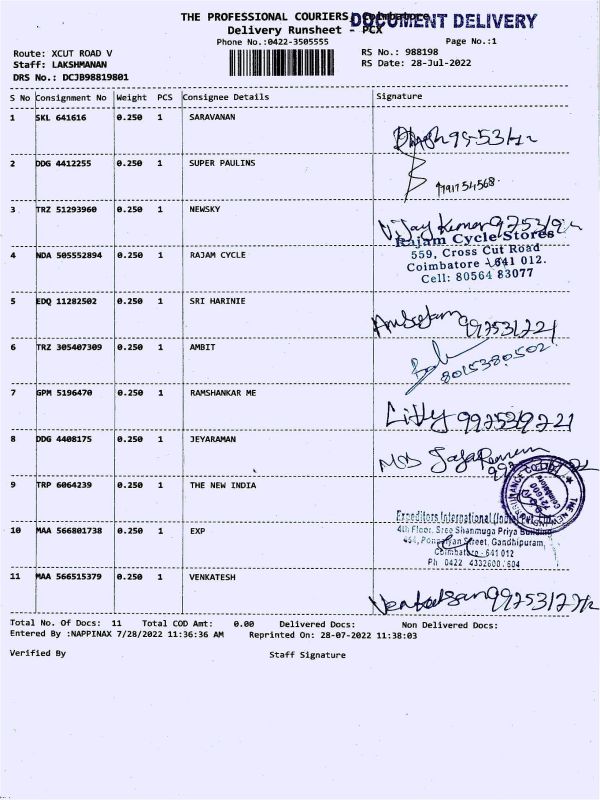 THE PROFESSIONAL COURIERS, Coimbatore
DOCUMENT DELIVERY
Delivery Runsheet - PCX
Phone No.:0422-3505555
Page No.:1
Route: XCUT ROAD V
RS No.: 988198
Staff: LAKSHMANAN
RS Date: 28-Jul-2022
DRS No.: DCJB98819801
S No Consignment No Weight PCS Consignee Details Signature
1 SKL 641616 0.250 1 SARAVANAN
2 DDG 4412255 0.250 1 SUPER PAULINS
3 TRZ 51293960 0.250 1 NEWSKY
Vijay Kumar
Rajam Cycle Stores
4 NDA 505552894 0.250 1 RAJAM CYCLE
559, Cross Cut Road
Coimbatore - 641 012.
Cell: 80564 83077
5 EDQ 11282502 0.250 1 SRI HARINIE
6 TRZ 305407309 0.250 1 AMBIT
8015380502
7 GPM 5196470 0.250 1 RAMSHANKAR ME
8 DDG 4408175 0.250 1 JEYARAMAN
9 TRP 6064239 0.250 1 THE NEW INDIA
Expeditors International (India) Pvt. Ltd.
10 MAA 566801738 0.250 1 EXP
4th Floor, Sree Shanmuga Priya Building
464, Ponnaiyan Street, Gandhipuram,
Coimbatore - 641 012
Ph 0422 4332600 / 604
11 MAA 566515379 0.250 1 VENKATESH
Total No. Of Docs: 11 Total COD Amt: 0.00 Delivered Docs: Non Delivered Docs:
Entered By :NAPPINAX 7/28/2022 11:36:36 AM Reprinted On: 28-07-2022 11:38:03
Verified By Staff Signature